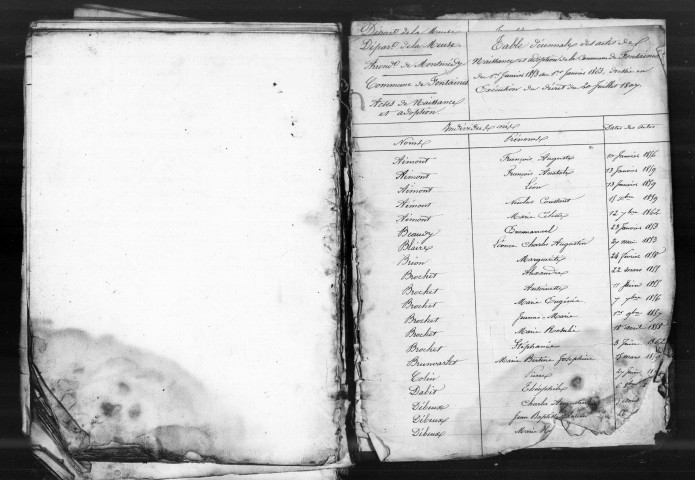 Départ. de la Meuse
Départ. de la Meuse
Arrond. de Montmédy
Commune de Fontaines
Actes de Naissance
et adoption.
Table décennale des actes de
Naissance et adoption de la Commune de Fontaines
du 1er Janvier 1853 au 1er Janvier 1863, dressée en
Exécution du décret du 20 Juillet 1807.
Individus
Noms Prénoms Dates des Actes
Aimont François Auguste Janvier 1856
Aimont François Anatole 13 Janvier 1859
Aimont Léon 13 Janvier 1859
Aimont Nicolas Constant 15 1859
Aimont Marie 12 7bre 1862
Beaudy Emmanuel 23 Janvier 1853
Blaire Léonce Charles Augustin 29 mai 1853
Brion Marguerite 24 février 1858
Brochet Alexandre 22 mars 1855
Brochet Antoinette 11
Brochet Marie Eugénie 7 1856
Brochet Jeanne-Marie 1857
Brochet Marie Rosalie 18 avril 1858
Brochet Stéphanie 3 Juin
Brunvarlet Marie Victorine Joséphine mars
Colin Pierre
Dabit
Débeux Charles Augustin
Débeux Jean Baptiste
Débeux Marie